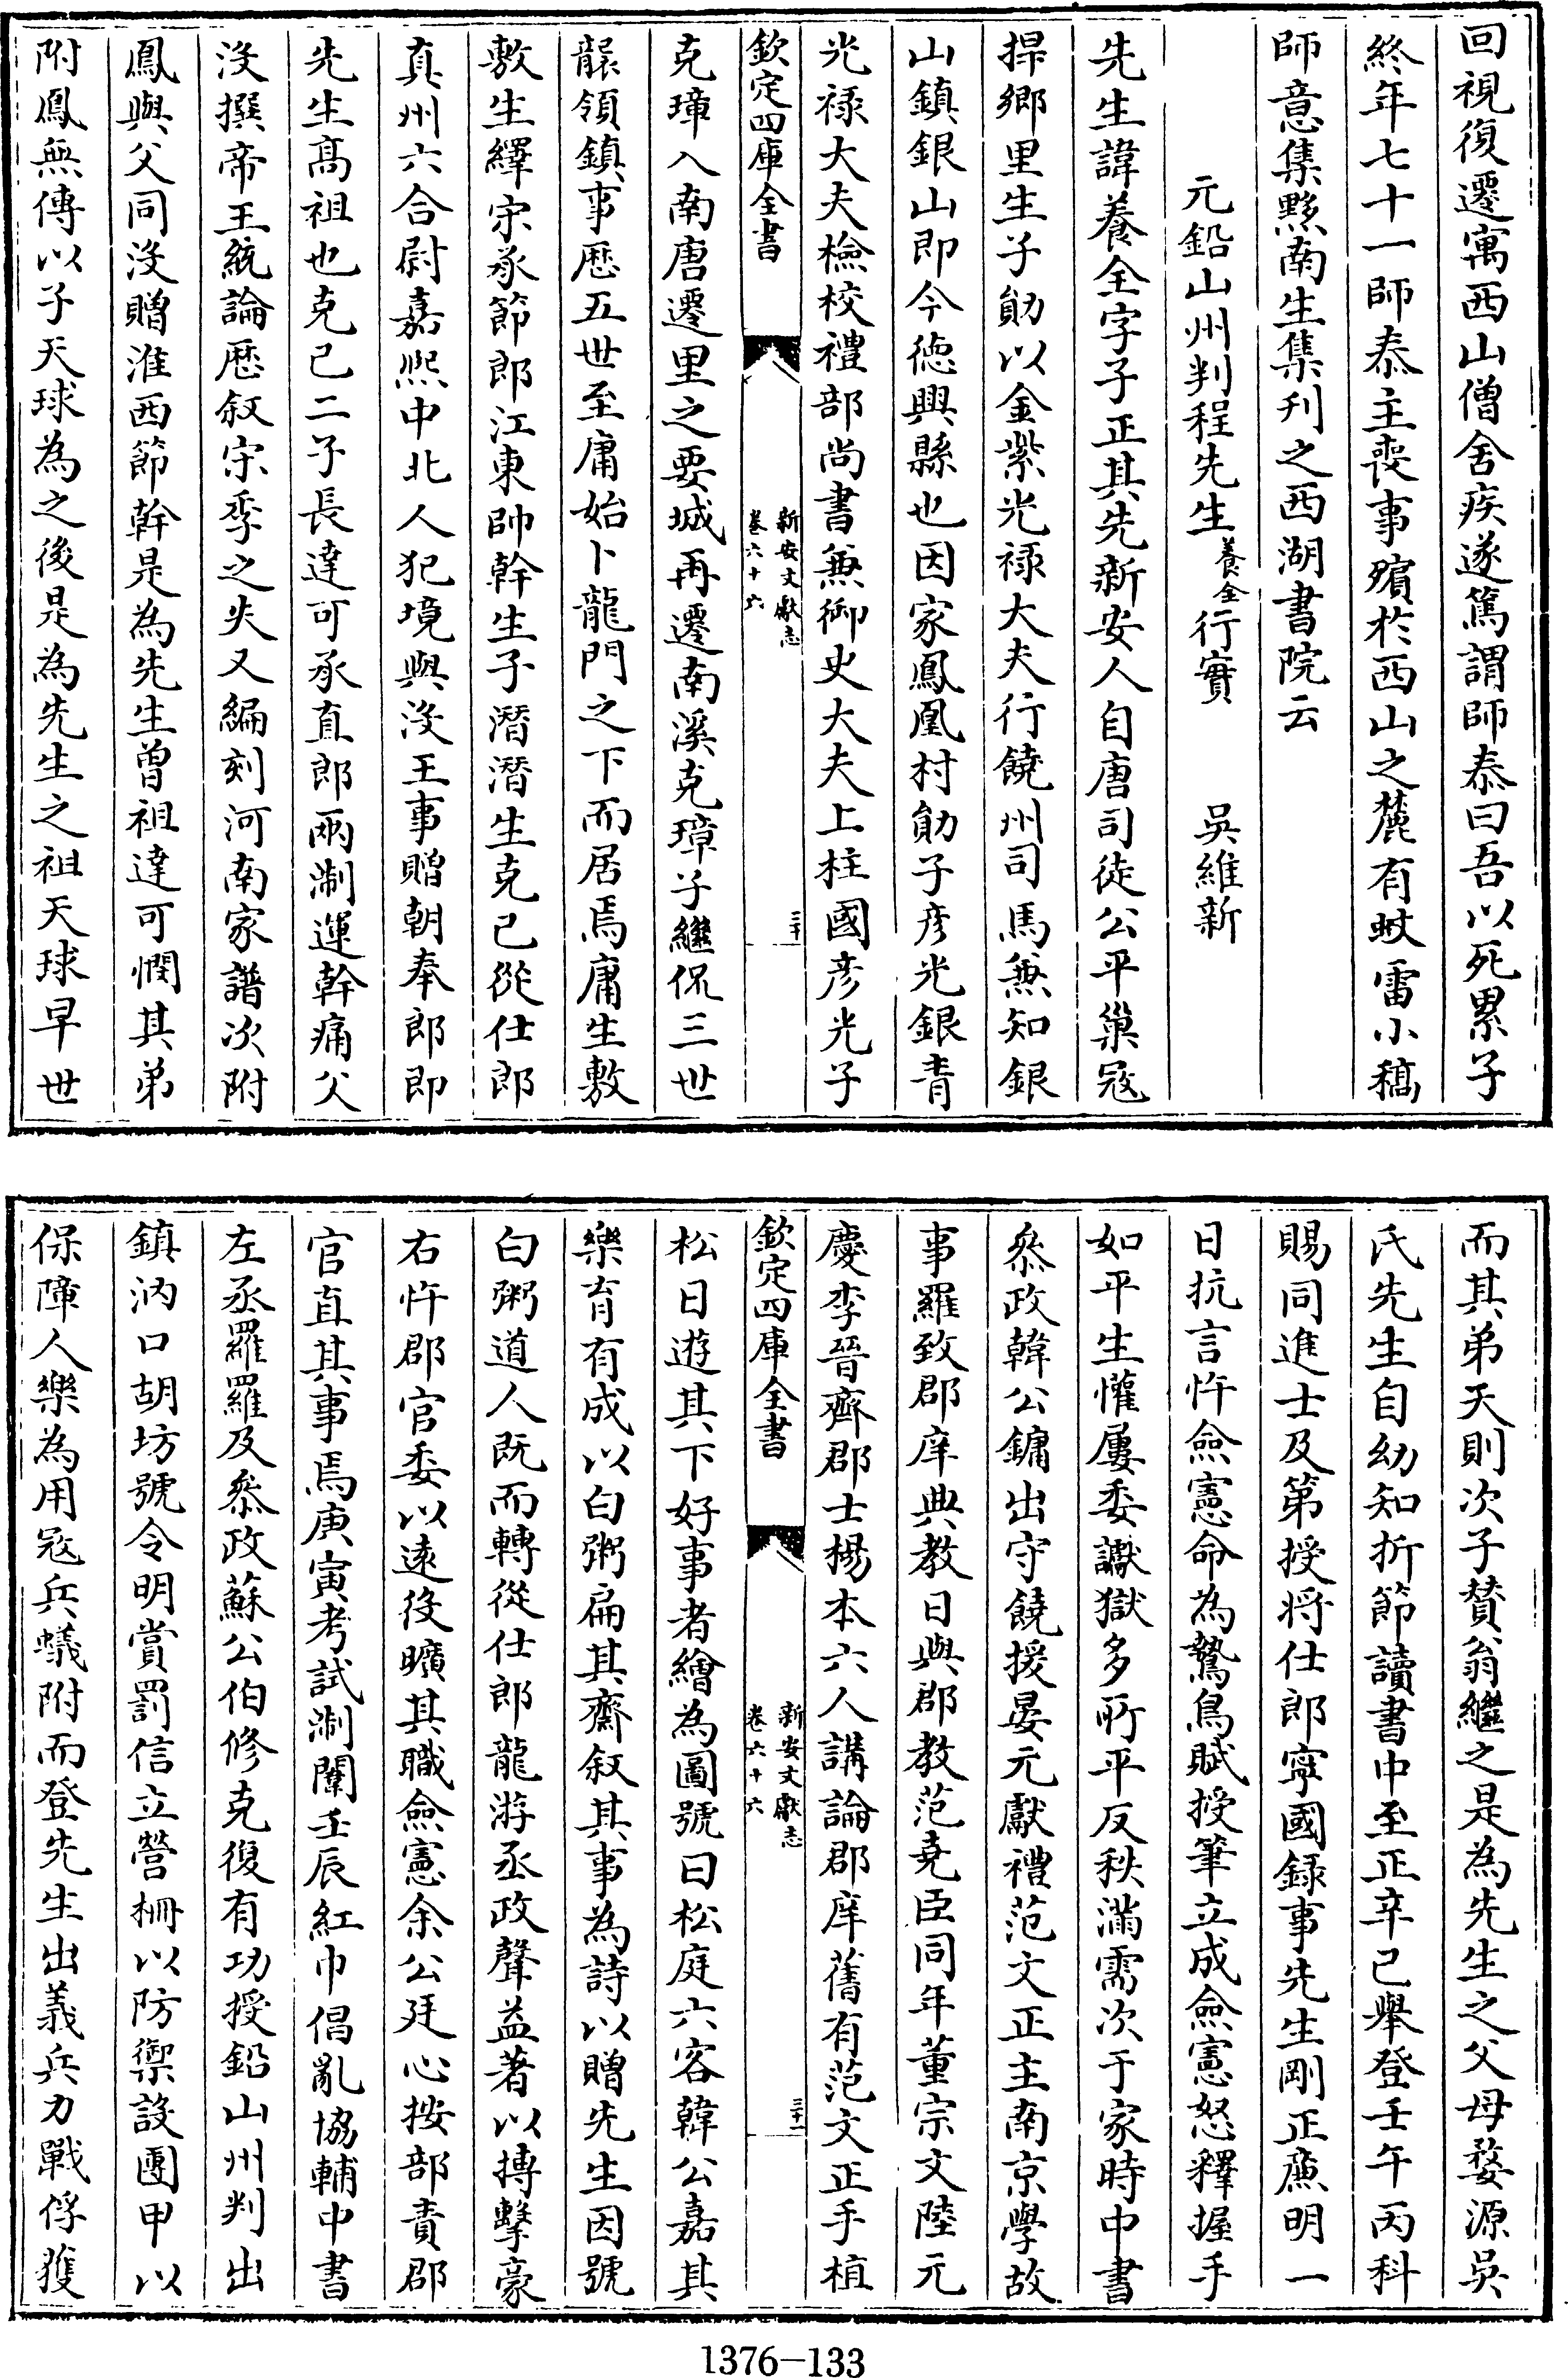 回視復遷寓西山僧舍疾遂篤謂師泰曰吾以死累子
終年七十一師泰主喪事殯於西山之麓有蚊雷小稿
師意集黟南生集刋之西湖書院云
元鉛山州判程先生養全行實 吳維新
先生諱養全字子正其先新安人自唐司徒公平巢冦
捍鄉里生子勛以金紫光祿大夫行饒州司馬兼知銀
山鎮銀山即今德興縣也因家鳳凰村勛子彦光銀青
光祿大夫檢校禮部尚書兼御史大夫上柱國彦光子
欽定四庫全書
新安文獻志
卷六十六
三十
克璋入南唐遷里之要城再遷南溪克璋子繼侃三世
襲領鎮事歷五世至庸始卜龍門之下而居焉庸生敷
敷生繹宋承節郎江東帥幹生子潛潛生克己從仕郎
真州六合尉嘉熙中北人犯境與沒王事贈朝奉郎即
先生髙祖也克己二子長達可承直郎兩淛運幹痛父
沒撰帝王統論歷叙宋季之失又編刻河南家譜次附
鳳與父同沒贈淮西節幹是為先生曾祖達可憫其弟
附鳳無傳以子天球為之後是為先生之祖天球早世
而其弟天則次子賛翁繼之是為先生之父母婺源吳
氏先生自幼知折節讀書中至正辛已舉登壬午丙科
賜同進士及第授將仕郎寧國錄事先生剛正廉明一
日抗言忤僉憲命為鷙鳥賦授筆立成僉憲怒釋握手
如平生懽屢委讞獄多所平反秩滿需次于家時中書
叅政韓公鏞出守饒援晏元獻禮范文正主南京學故
事羅致郡庠典教日與郡教范堯臣同年董宗文陸元
慶李晉齊郡士楊本六人講論郡庠舊有范文正手植
欽定四庫全書
新安文獻志
卷六十六
三十一
松日遊其下好事者繪為圖號曰松庭六客韓公嘉其
樂育有成以白粥扁其齋叙其事為詩以贈先生因號
白粥道人既而轉從仕郎龍游丞政聲益著以搏擊豪
右忤郡官委以遠役曠其職僉憲余公廷心按部責郡
官直其事焉庚寅考試淛闈壬辰紅巾倡亂協輔中書
左丞羅羅及叅政蘇公伯修克復有功授鉛山州判出
鎮汭口胡坊號令明賞罰信立營柵以防禦設團甲以
保障人樂為用冦兵蟻附而登先生出義兵力戰俘獲
1376—133